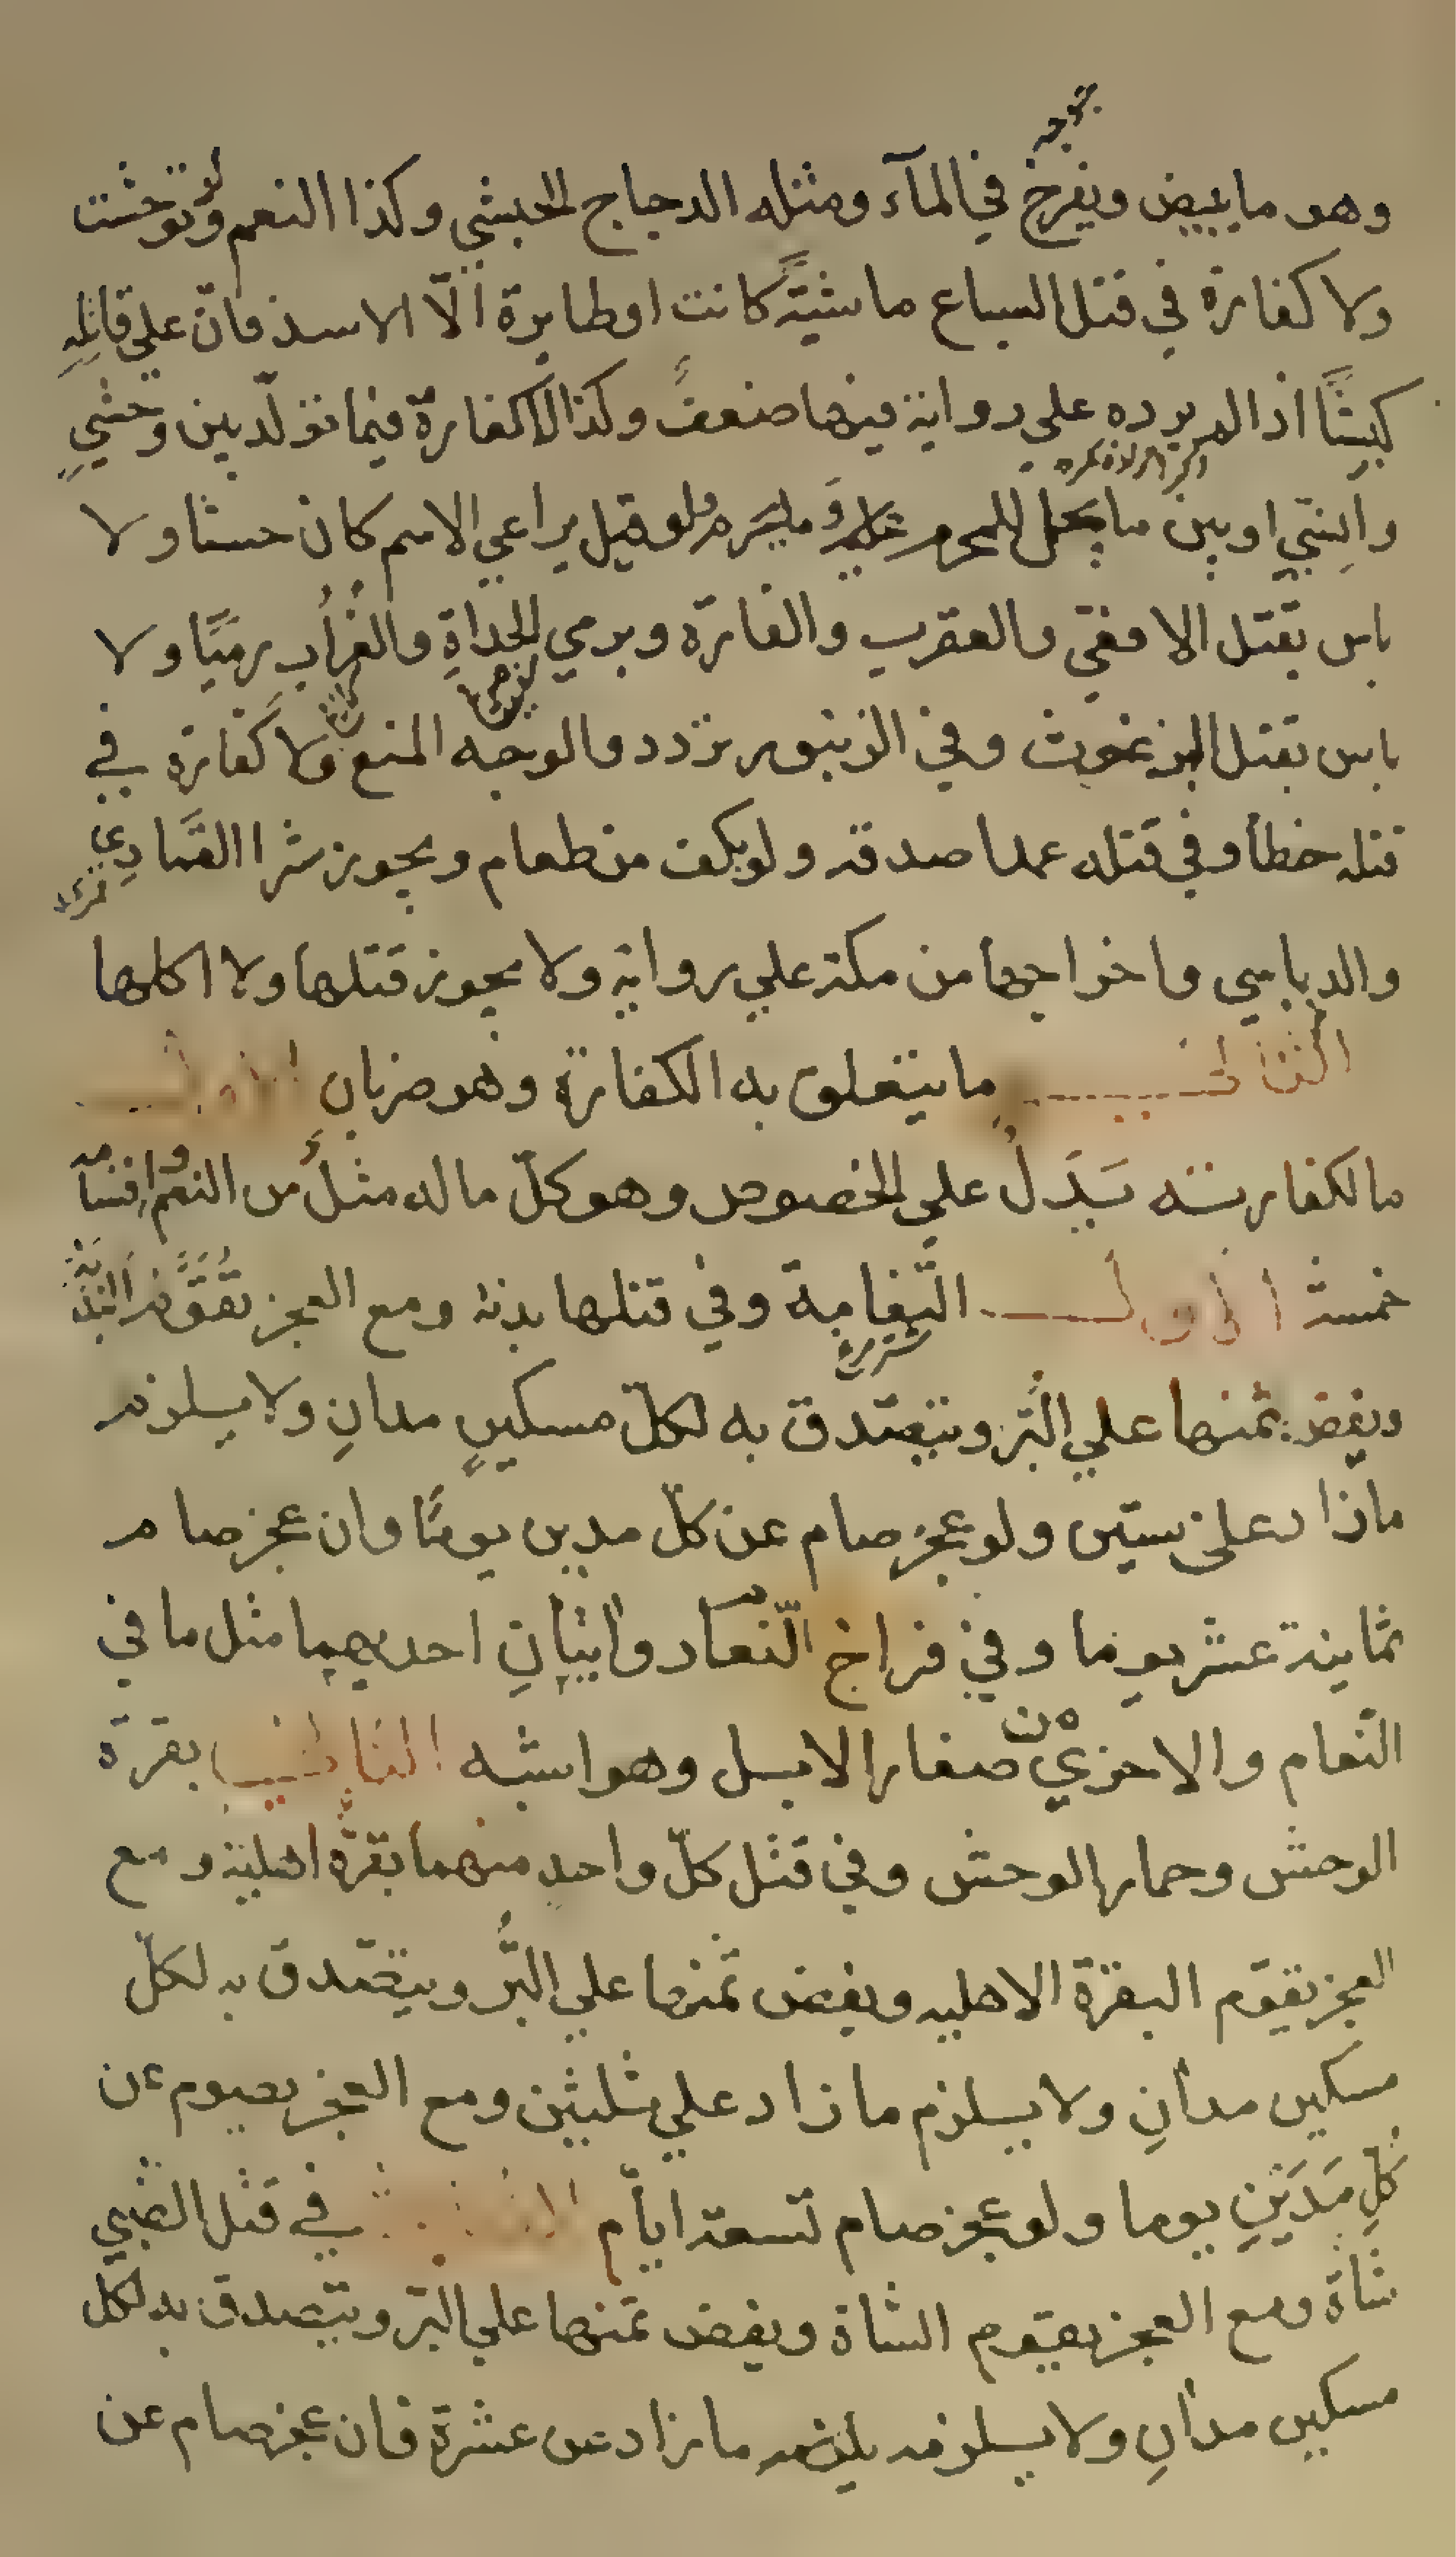 وهو ما يبيض ويفرخ في المآء ومثله الدجاج الحبشي وكذا النعم ولو توحشت
ولا كفارة في قتل السباع ماشيةً كانت او طايرة الّا الاسد فانّ على قاتلهِ
كبشًا اذا لم يرده علي رواية فيها ضعفٌ وكذا لا كفارة فيما تولّد بين وحشيٍ
وانسيّ او بين ما يحل للمحرم وما يحرم ولو قيل يراعي الاسم كان حسنا ولا
باس بقتل الافعي والعقرب والفارة وبرمي الحداةِ والغُراب رميًا ولا
باس بقتل البرغوث وفي الزنبور تردد والوجه المنع ولا كفارة في
قتله خطأ وفي قتله عمدا صدقه ولو بكف من طعام ويجوز شرا القمارِي
والدباسي واخراجها من مكة علي رواية ولا يجوز قتلها ولا اكلها
الثاني ما يتعلق به الكفارة وهو ضربان الاول
ما لكفارته بَدَلٌ علي الخصوص وهو كلّ ما له مثلٌ من النعم واقسامه
خمسة الاول النّعامة وفي قتلها بدنة ومع العجز تُقَوَّم البَدَنَة
ويفض ثمنها علي البُرّ ويتصدق به لكلّ مسكينٍ مدانِ ولا يلزم
ما زاد علي ستين ولو عجز صام عن كلّ مدين يومًا وان عجز صام
ثمانية عشر يوما وفي فراخ النّعام روايتانِ احديهما مثل ما في
النّعام والاخري من صغار الابل وهو اشبه الثاني بقرة
الوحش وحمار الوحش وفي قتل كلّ واحدٍ منهما بقرةٌ اهلية ومع
العجز يقوّم البقرة الاهليه ويفض ثمنها علي البُرّ ويتصّدق به لكلّ
مسكين مدانِ ولا يلزم ما زاد علي ثلثين ومع العجز يصوم عن
كُلِ مَدَيْنِ يوما ولو عجز صام تسعة ايأم الثالث في قتل الظبي
شاة ومع العجز يقوم الشاة ويفض ثمنها علي البرّ ويتصدق به لكلّ
مسكين مدانِ ولا يلزمه ما زاد عن عشرة فان عجز صام عن